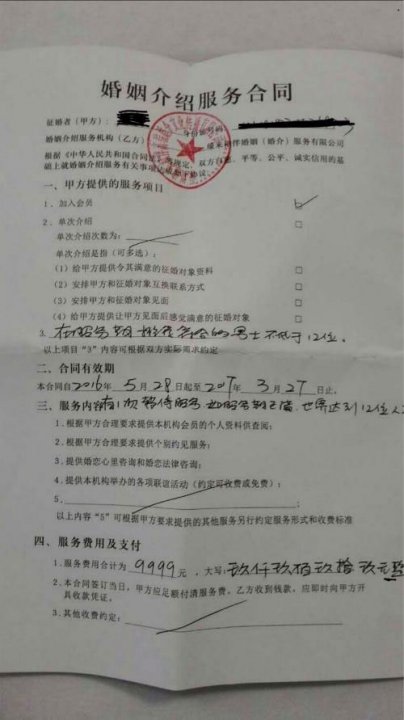 婚姻介绍服务合同
征婚者（甲方）：
婚姻介绍服务机构（乙方） 缘来相伴婚姻（婚介）服务有限公司
根据《中华人民共和国合同法》 规定，双方自愿、平等、公平、诚实信用的基
础上就婚姻介绍服务有关事项达成如下协议。
一、甲方提供的服务项目
1．加入会员 □
2．单次介绍 □
单次介绍次数为：
单次介绍是指（可多选）：
（1）给甲方提供令其满意的征婚对象资料 □
（2）安排甲方和征婚对象互换联系方式 □
（3）安排甲方和征婚对象见面 □
（4）给甲方提供让甲方见面后感觉满意的征婚对象 □
3. 在服务期 推荐 合的男士不低于12位。
以上项目“3”内容可根据双方实际需求约定
二、合同有效期
本合同自2016年 5 月 28 日起至2017年 3 月 27 日止。
三、服务内容有1次暂停服务 如服务期 达到12位
1．根据甲方合理要求提供本机构会员的个人资料供查阅；
2．根据甲方合理要求提供个别约见服务；
3．提供婚恋心里咨询和婚恋法律咨询；
4．提供本机构举办的各项联谊活动（约定可收费或免费）；
5．
以上内容“5”可根据甲方要求提供的其他服务另行约定服务形式和收费标准
四、服务费用及支付
1．服务费用合计为 9999 元，大写：玖仟玖佰玖拾玖元整
2．本合同签订当日，甲方应足额付清服务费。乙方收到钱款，应即时向甲方开
具收款凭证。
3．其他收费约定：